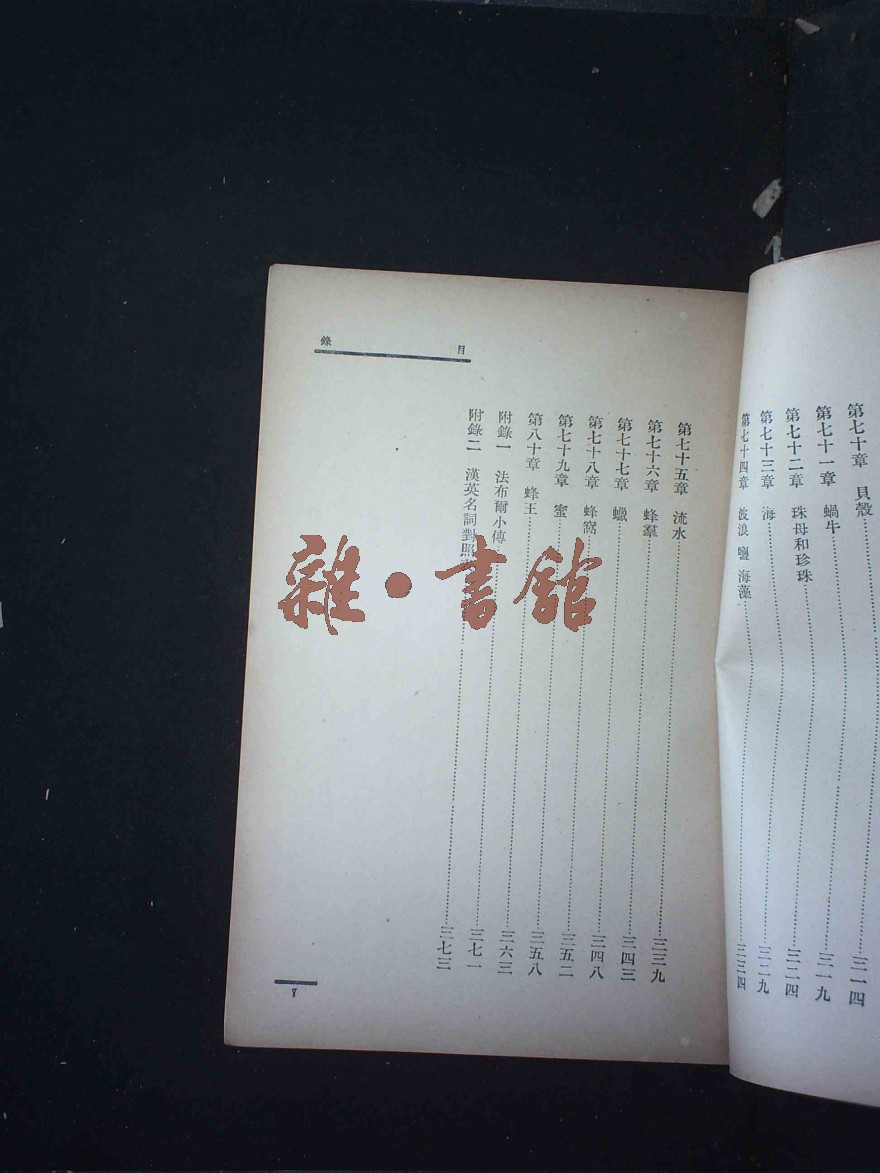 第七十章 貝殼……三一四
第七十一章 蝸牛……三一九
第七十二章 珠母和珍珠……三二四
第七十三章 海……三二九
第七十四章 波浪 鹽 海藻……三三四
目錄
第七十五章 流水……三三九
第七十六章 蜂羣……三四三
第七十七章 蠟……三四八
第七十八章 蜂窩……三五二
第七十九章 蜜……三五八
第八十章 蜂王……三六三
附錄一 法布爾小傳……三七一
附錄二 漢英名詞對照……三七三
7
雜·書館